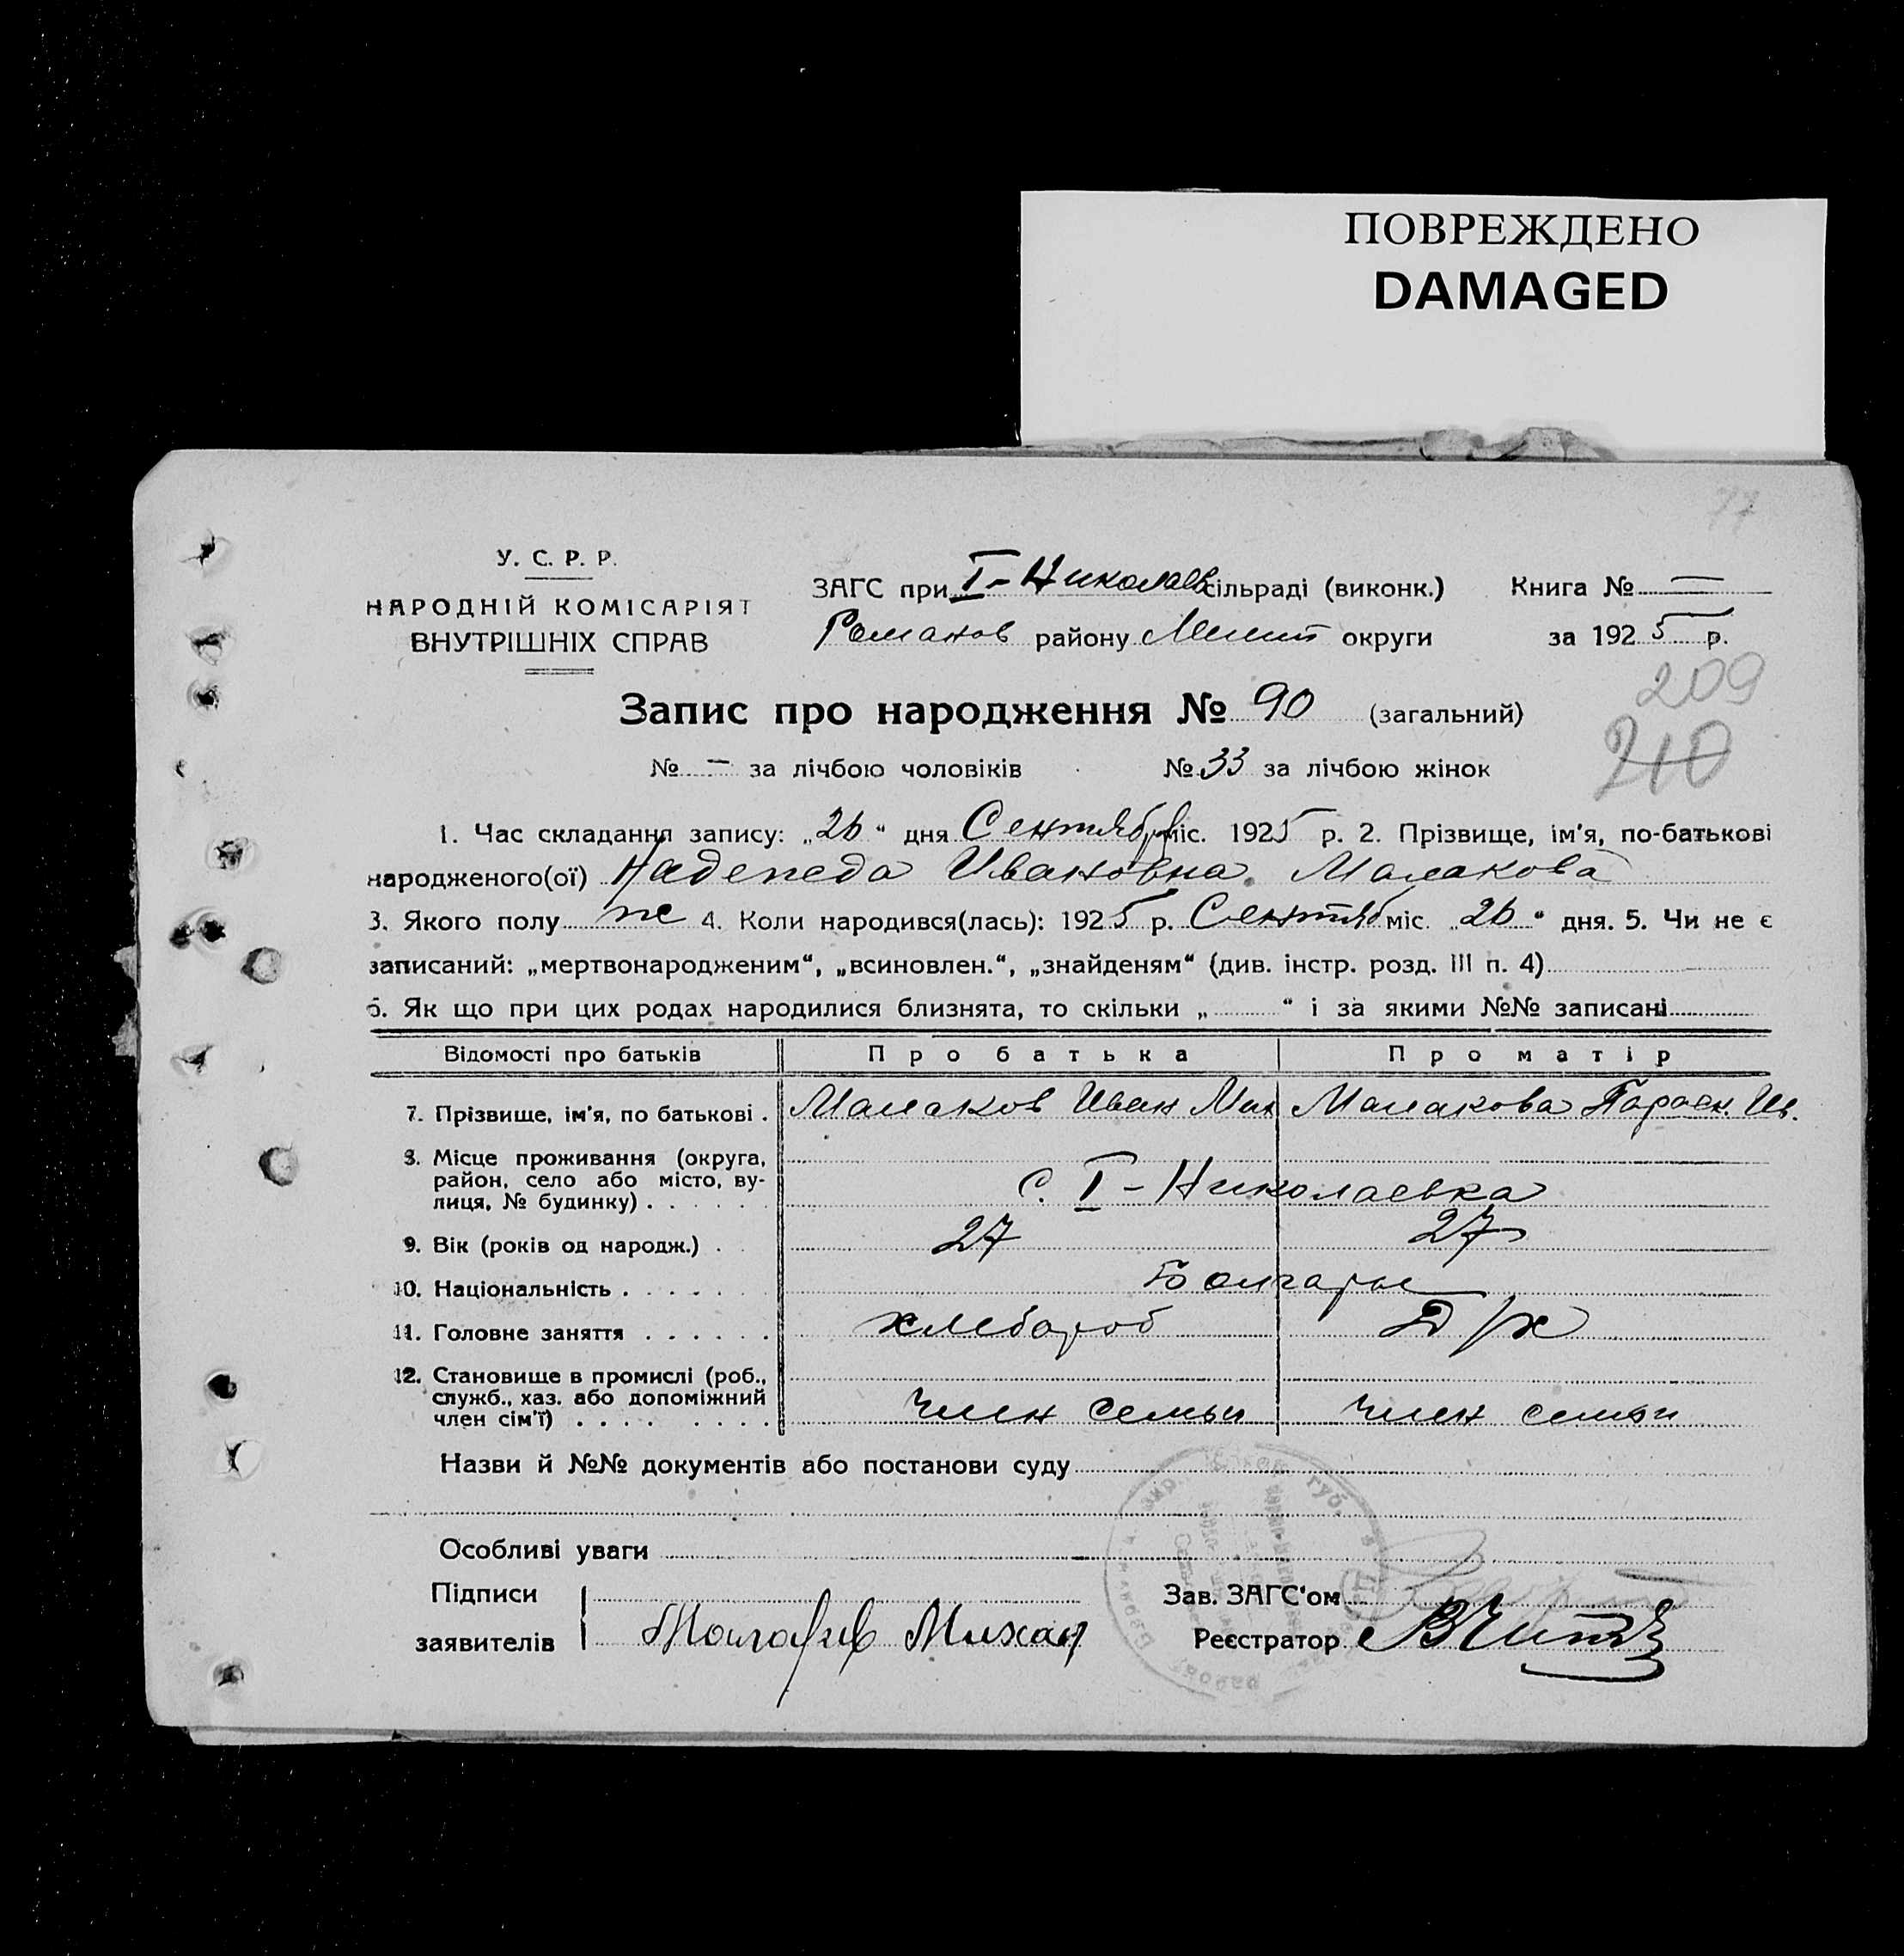 ПОВРЕЖДЕНО
DAMAGED
77
У. С. Р. Р.
НАРОДНІЙ КОМІСАРІЯТ
ВНУТРІШНІХ СПРАВ
ЗАГС при I-Николаев сільраді (виконк.) Книга №
Романов району Мелит округи за 1925 р.
209
210
Запис про народження № 90 (загальний)
№ - за лічбою чоловіків № 33 за лічбою жінок
1. Час складання запису: „26“ дня Сентября міс. 1925 р. 2. Прізвище, ім'я, по-батькові
народженого(ої) Надежда Ивановна Малакова
3. Якого полу ж 4. Коли народився(лась): 1925 р. Сентяб міс. „26“ дня. 5. Чи не є
записаний: „мертвонародженим“, „всиновлен.“, „знайденям“ (див. інстр. розд. III п. 4)
6. Як що при цих родах народилися близнята, то скільки „ “ і за якими №№ записані
Відомості про батьків Про батька Про матір
7. Прізвище, ім'я, по батькові . Малаков Иван Мих Малакова Параск. Ив.
8. Місце проживання (округа,
район, село або місто, ву-
лиця, № будинку) . . . . . . с. I-Николаевка
9. Вік (років од народж.) . 27 27
10. Національність . . . . . . . Болгары
11. Головне заняття . . . . . . хлебороб Д/х
12. Становище в промислі (роб.,
служб., хаз. або допоміжний
член сім'ї) . . . . . . . . член семьи член семьи
Назви й №№ документів або постанови суду
Особливі уваги
Підписи
заявителів Михаил
Зав. ЗАГС'ом
Реєстратор